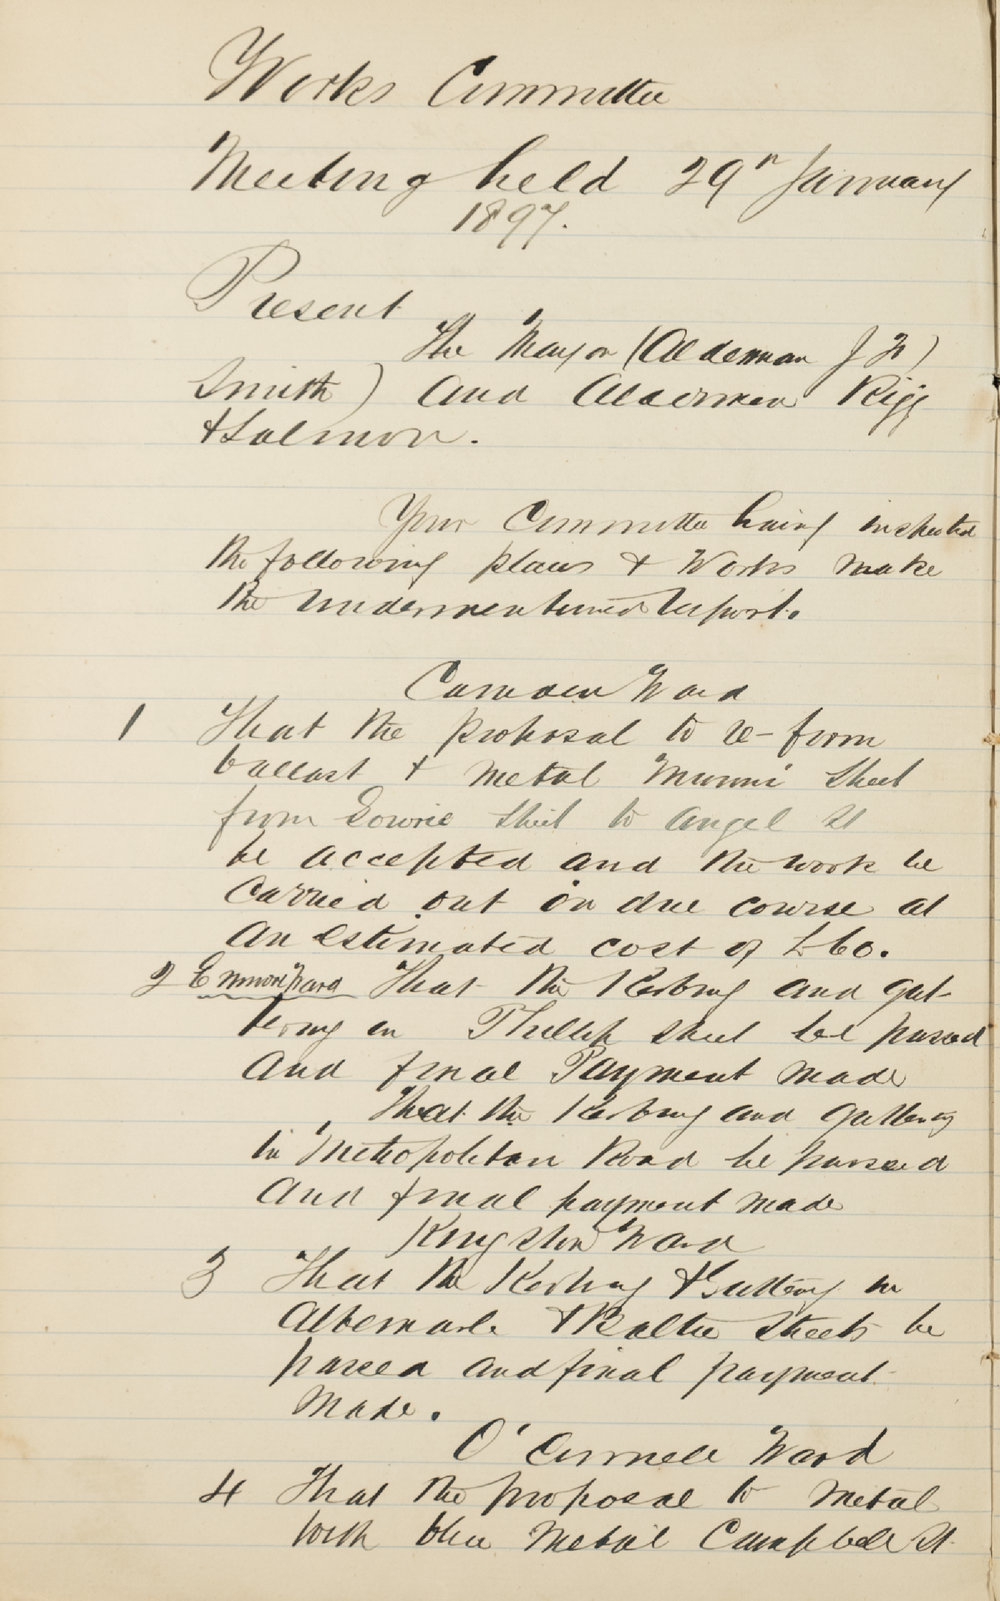 Works Committee
Meeting held 29th January
1897.
Present
The Mayor (Alderman J F)
Smith) and Aldermen Rigg
& Salmon.
Your Committee having inspected
the following plans & Works make
the undermentioned report.
Camden Ward
1 That the proposal to re-form
ballast & metal Munni Street
from Gowrie Street to Angel St
be accepted and the work be
carried out in due course at
an estimated cost of £60.
2 Enmore Ward That the Kerbing and gut-
tering in Phillip street be passed
and final Payment made
That the Kerbing and guttering
in Metropolitan Road be passed
and final payment made
Kingston Ward
3 That the Kerbing & Guttering in
Albemarle & Baltic Streets be
passed and final payment
made.
O'Connell Ward
4 That the proposal to metal
with blue metal Campbell St